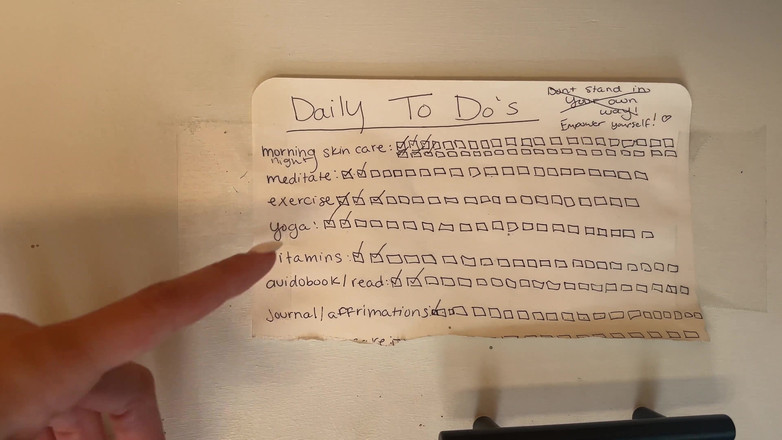 Daily To Do's
Dont stand in
Your own
way!
Empower yourself! ♡
morning skin care:
night
meditate:
exercise
yoga:
itamins:
auidobook/read:
Journal/affrimations: